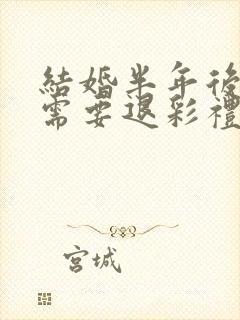 結婚半年後
需要退彩禮
宮城